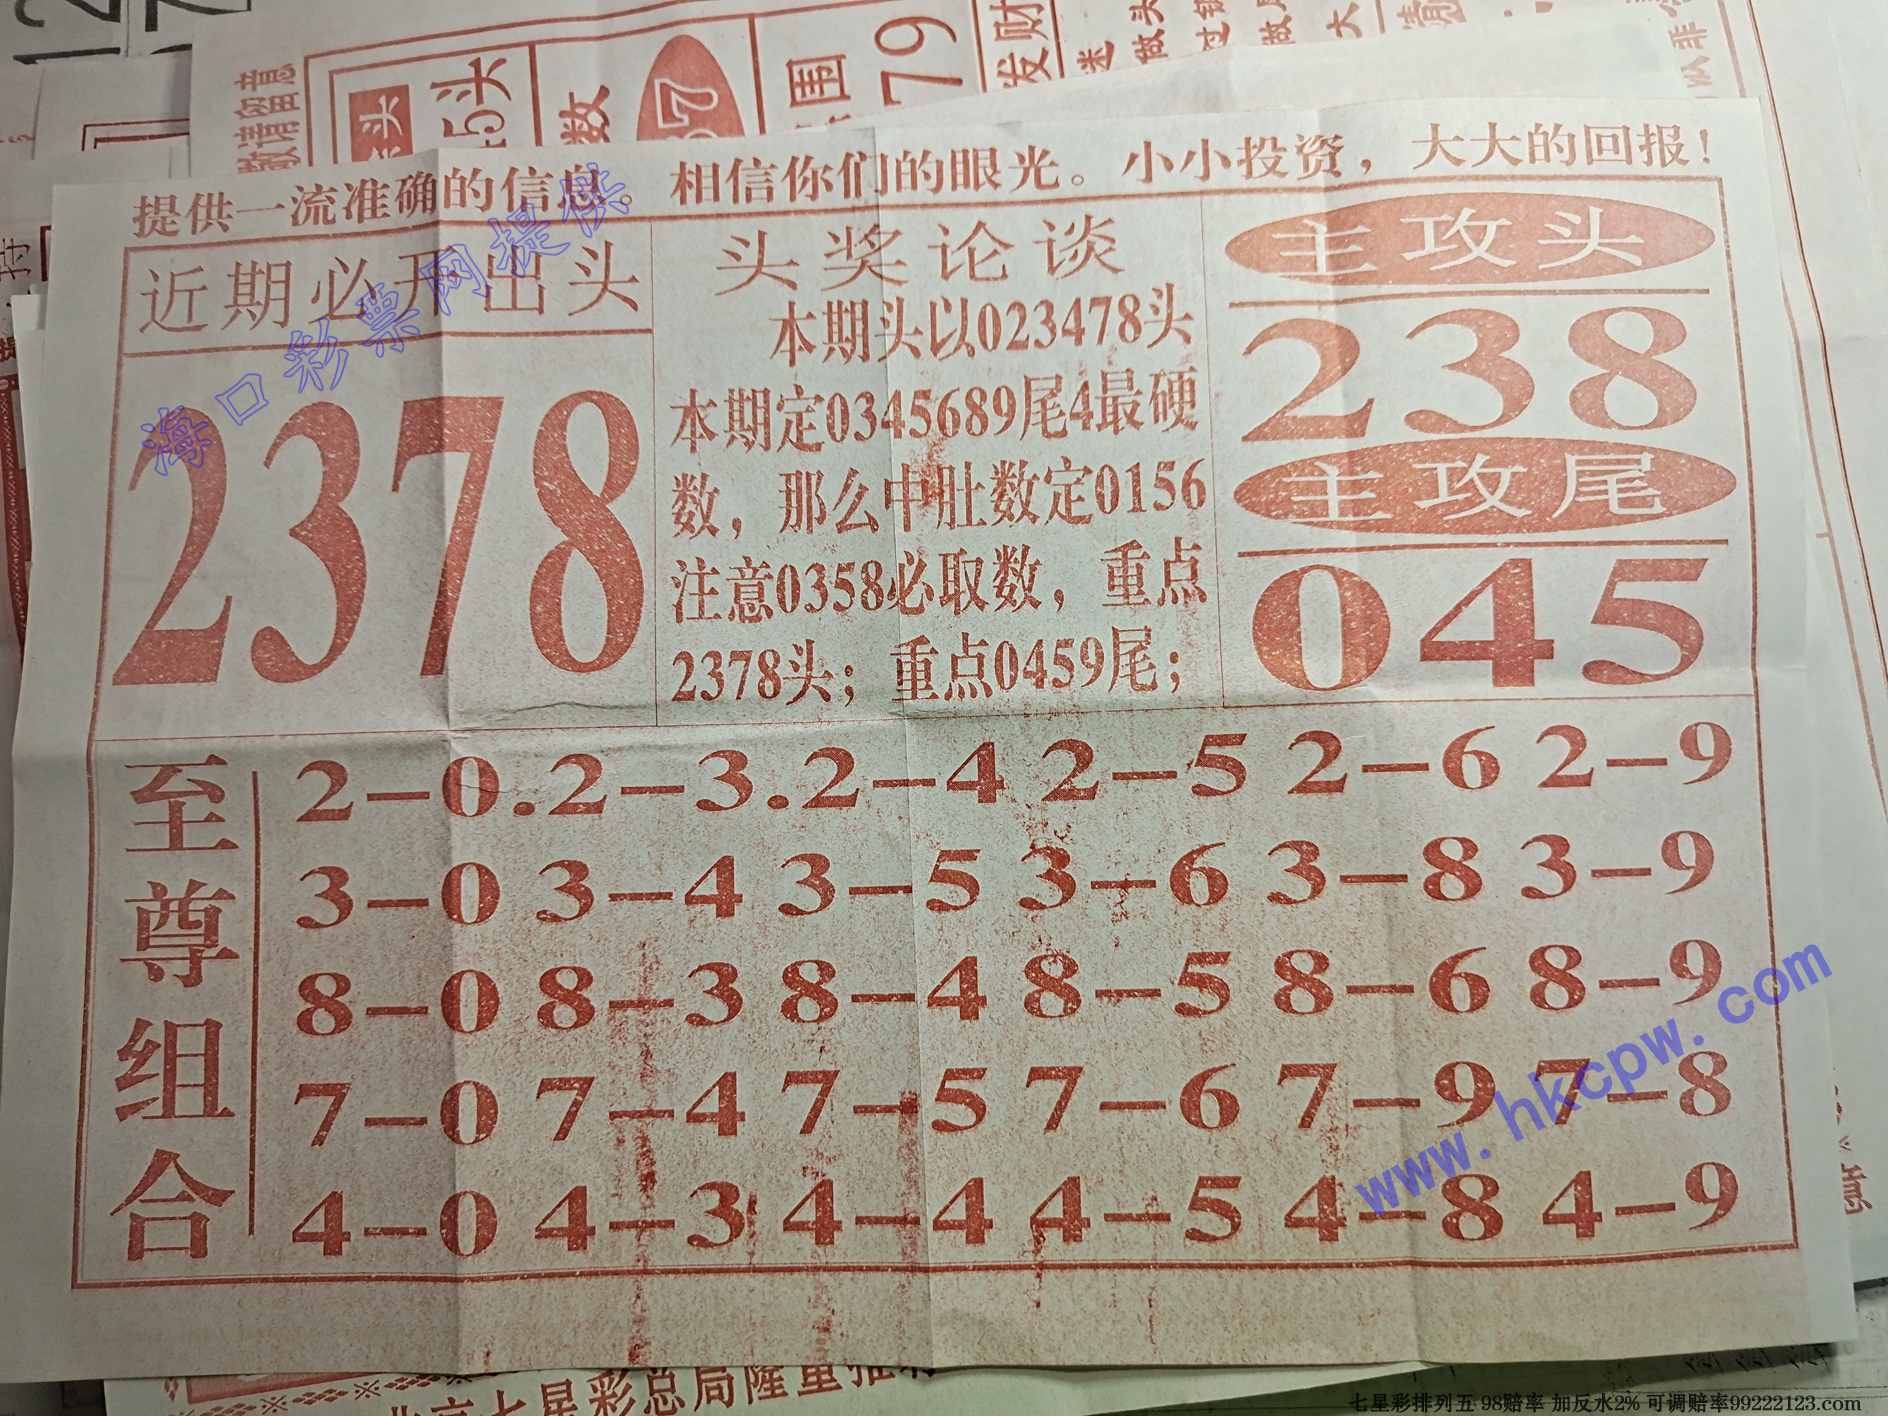 敬请留意
5头
数
37
围
79
发财
提供一流准确的信息 相信你们的眼光。小小投资，大大的回报！
近期必开出头
2378
头奖论谈
本期头以023478头
本期定0345689尾4最硬
数，那么中肚数定0156
注意0358必取数，重点
2378头；重点0459尾；
主攻头
238
主攻尾
045
至尊组合
2–0.2–3.2–4 2–5 2–6 2–9
3–0 3–4 3–5 3–6 3–8 3–9
8–0 8–3 8–4 8–5 8–6 8–9
7–0 7–4 7–5 7–6 7–9 7–8
4–0 4–3 4–4 4–5 4–8 4–9
海口彩票网提供
www.hkcpw.com
七星彩总局隆重推
七星彩排列五 98赔率 加反水2% 可调赔率99222123.com